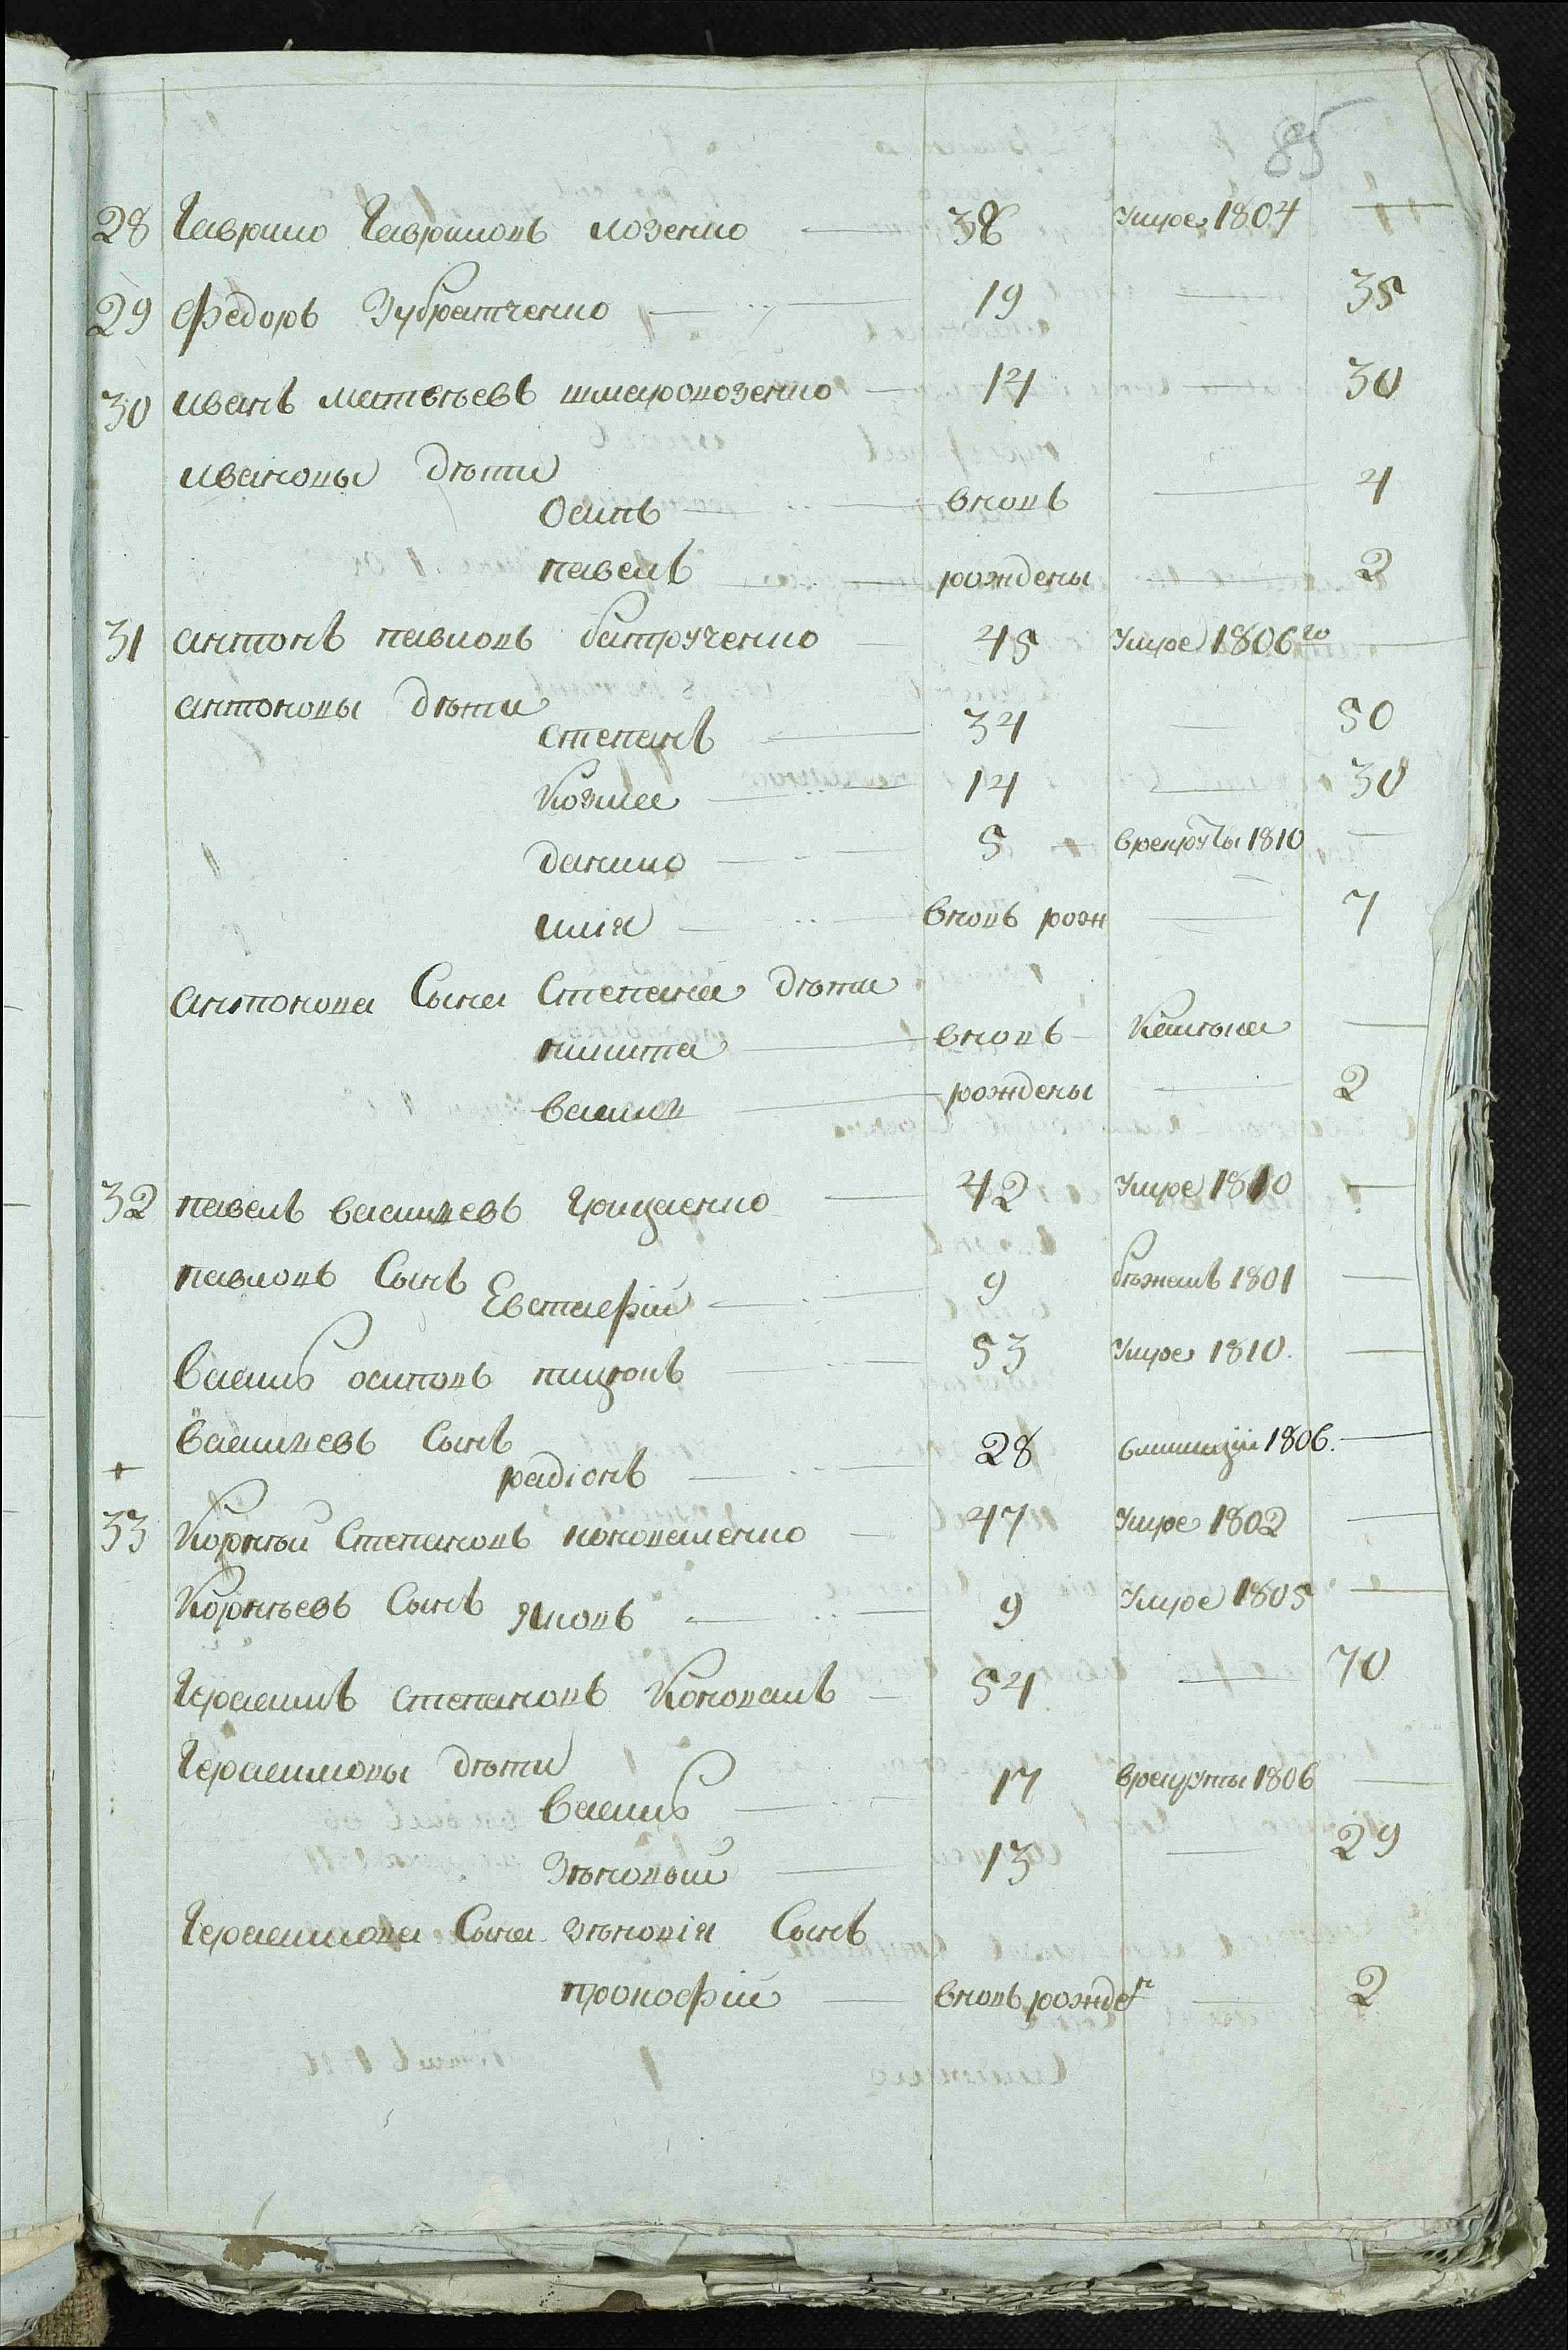 85
28 Гаврило Гавриловъ козенко 38 умре 1804
29 Федоръ Зубратченко 19 35
30 иванъ матвѣевъ шмаровозенко 14 30
ивановы дѣти
Осипъ вновь 4
павелъ рождены 2
31 антонъ павловъ батрученко 45 умре 1806го
антоновы дѣти
степанъ 34 50
Козма 14 30
данило 5 врекруты 1810
илія вновь рож 7
антонова Сына Степана дѣти
никита вновь
рождены 2
васил
32 павелъ василевъ Грицаенко 42 умре 1810
павловъ Сынъ
Евстафій 9 бѣжалъ 1801
василь осиповъ 53 умре 1810.
василевъ Сынъ
+ радіонъ 28 вмилицїи 1806.
33 Корнѣй Степановъ коноваленко 47 умре 1802
Корнѣевъ Сынъ яковъ 9 умре 1805
Герасимъ степановъ Коновалъ 54 70
Герасимовы дѣти
василь 17 врекруты 1806
Зѣновѣй 13 29
Герасимова Сына зѣновія Сынъ
прокофій вновь рожде 2